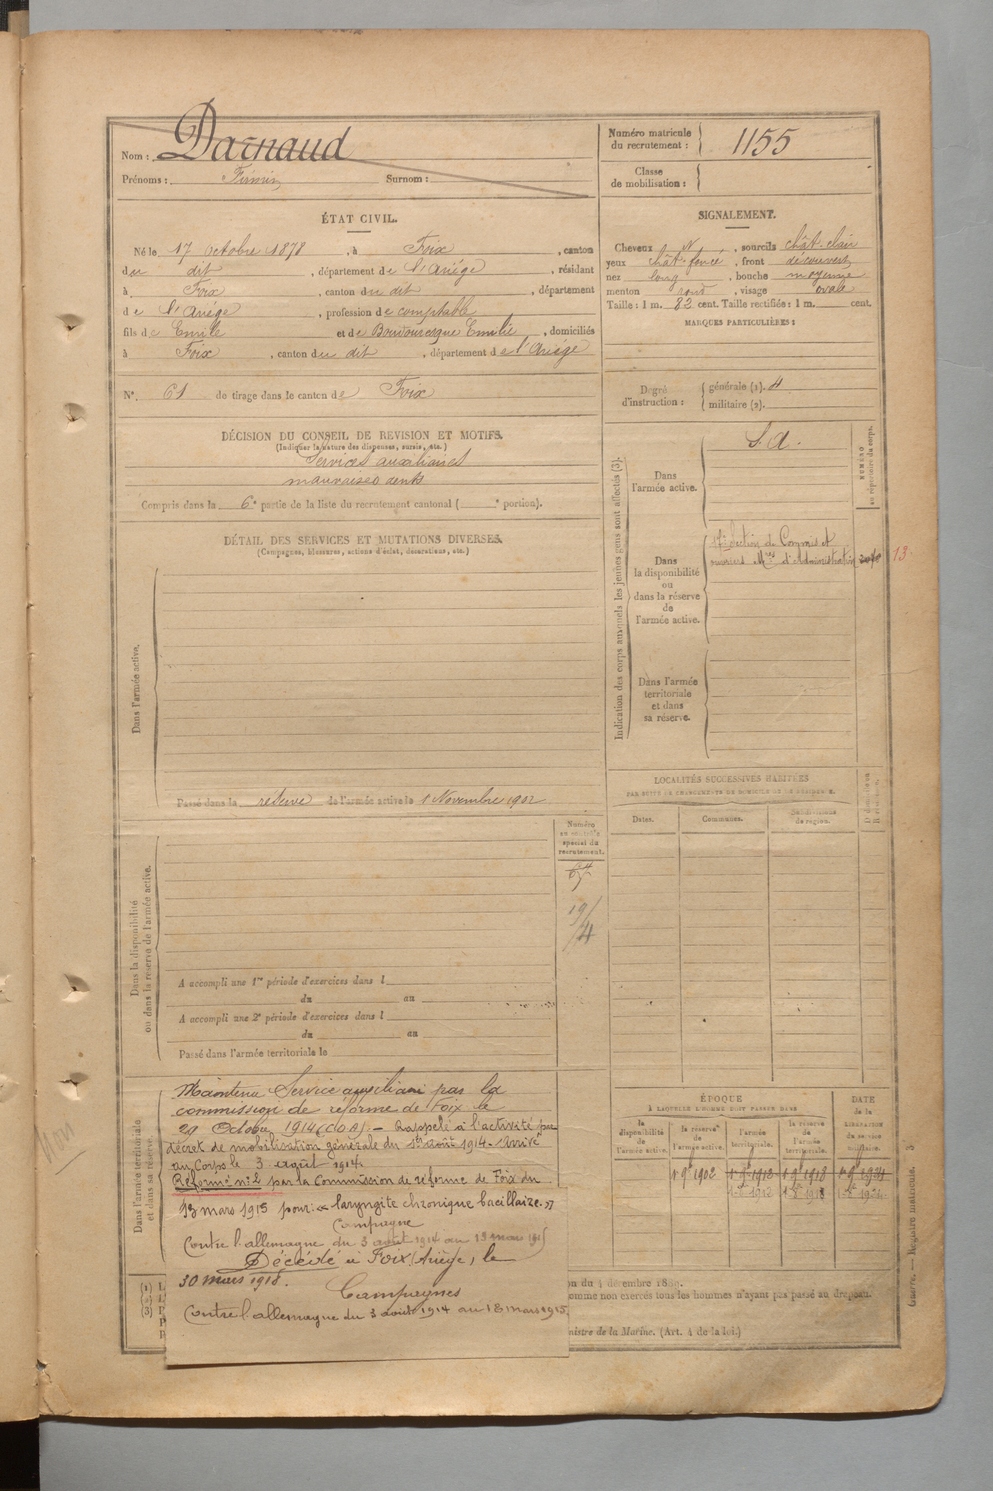 Nom : Darnaud
Prénoms : Firmin Surnom :
Numéro matricule du recrutement : 1155
Classe de mobilisation :
ÉTAT CIVIL.
Né le 17 Octobre 1878, à Foix, canton
du dit, département de l'Ariège, résidant
à Foix, canton du dit, département
de l'Ariège, profession de comptable
fils de Emile et de Emilie, domiciliés
à Foix, canton du dit, département de l'Ariège
N° 61 de tirage dans le canton de Foix
DÉCISION DU CONSEIL DE REVISION ET MOTIFS.
(Indiquer la nature des dispenses, sursis, etc.)
Services auxiliaires
mauvaises dents
Compris dans la 6e partie de la liste du recrutement cantonal ( e portion).
DÉTAIL DES SERVICES ET MUTATIONS DIVERSES.
(Campagnes, blessures, actions d'éclat, décorations, etc.)
Dans l'armée active.
Passé dans la réserve de l'armée active le 1 Novembre 1902
Numéro au contrôle spécial du recrutement.
19/4
Dans la disponibilité ou dans la réserve de l'armée active.
A accompli une 1re période d'exercices dans l
du au
A accompli une 2e période d'exercices dans l
du au
Passé dans l'armée territoriale le
Dans l'armée territoriale et dans sa réserve.
Non
Maintenu Service auxiliaire par la
commission de réforme de Foix le
29 Octobre 1914 - Rappelé à l'activité
décret de mobilisation générale du 1er août 1914. Arrivé
au Corps le 3 août 1914.
Réformé n°2 par la Commission de réforme de Foix du
13 mars 1915 pour : « laryngite chronique bacillaire. »
Campagne
Contre l'allemagne du 3 août 1914 au 13 mars 1915
Décédé à Foix (Ariège) le
30 mars 1918.
Campagnes
Contre l'allemagne du 3 août 1914 au 13 mars 1915
(1)
(2)
(3)
on du 4 décembre 1889.
omme non exercés tous les hommes n'ayant pas passé au drapeau.
nistre de la Marine. (Art. 4 de la loi.)
SIGNALEMENT.
Cheveux N, sourcils chât-clair
yeux chât-foncé, front découvert
nez long, bouche moyenne
menton rond, visage ovale
Taille : 1 m. 82 cent. Taille rectifiée : 1 m. cent.
MARQUES PARTICULIÈRES :
Degré d'instruction : générale (2). 4
militaire (2).
Indication des corps auxquels les jeunes gens sont affectés (3).
NUMÉRO au répertoire du corps.
Dans l'armée active.
S. A.
Dans la disponibilité ou dans la réserve de l'armée active.
17e Section de Commis et
ouvriers Mres d'Administration
13
Dans l'armée territoriale et dans sa réserve.
LOCALITÉS SUCCESSIVES HABITÉES
PAR SUITE DE CHANGEMENTS DE DOMICILE OU DE RÉSIDENCE.
Dates. Communes. Subdivisions de région.
ÉPOQUE
À LAQUELLE L'HOMME DOIT PASSER DANS
la disponibilité de l'armée active. la réserve de l'armée active. l'armée territoriale. la réserve de l'armée territoriale.
DATE de la LIBÉRATION du service militaire.
1 9e 1902
Guerre. — Registre matricule. 3